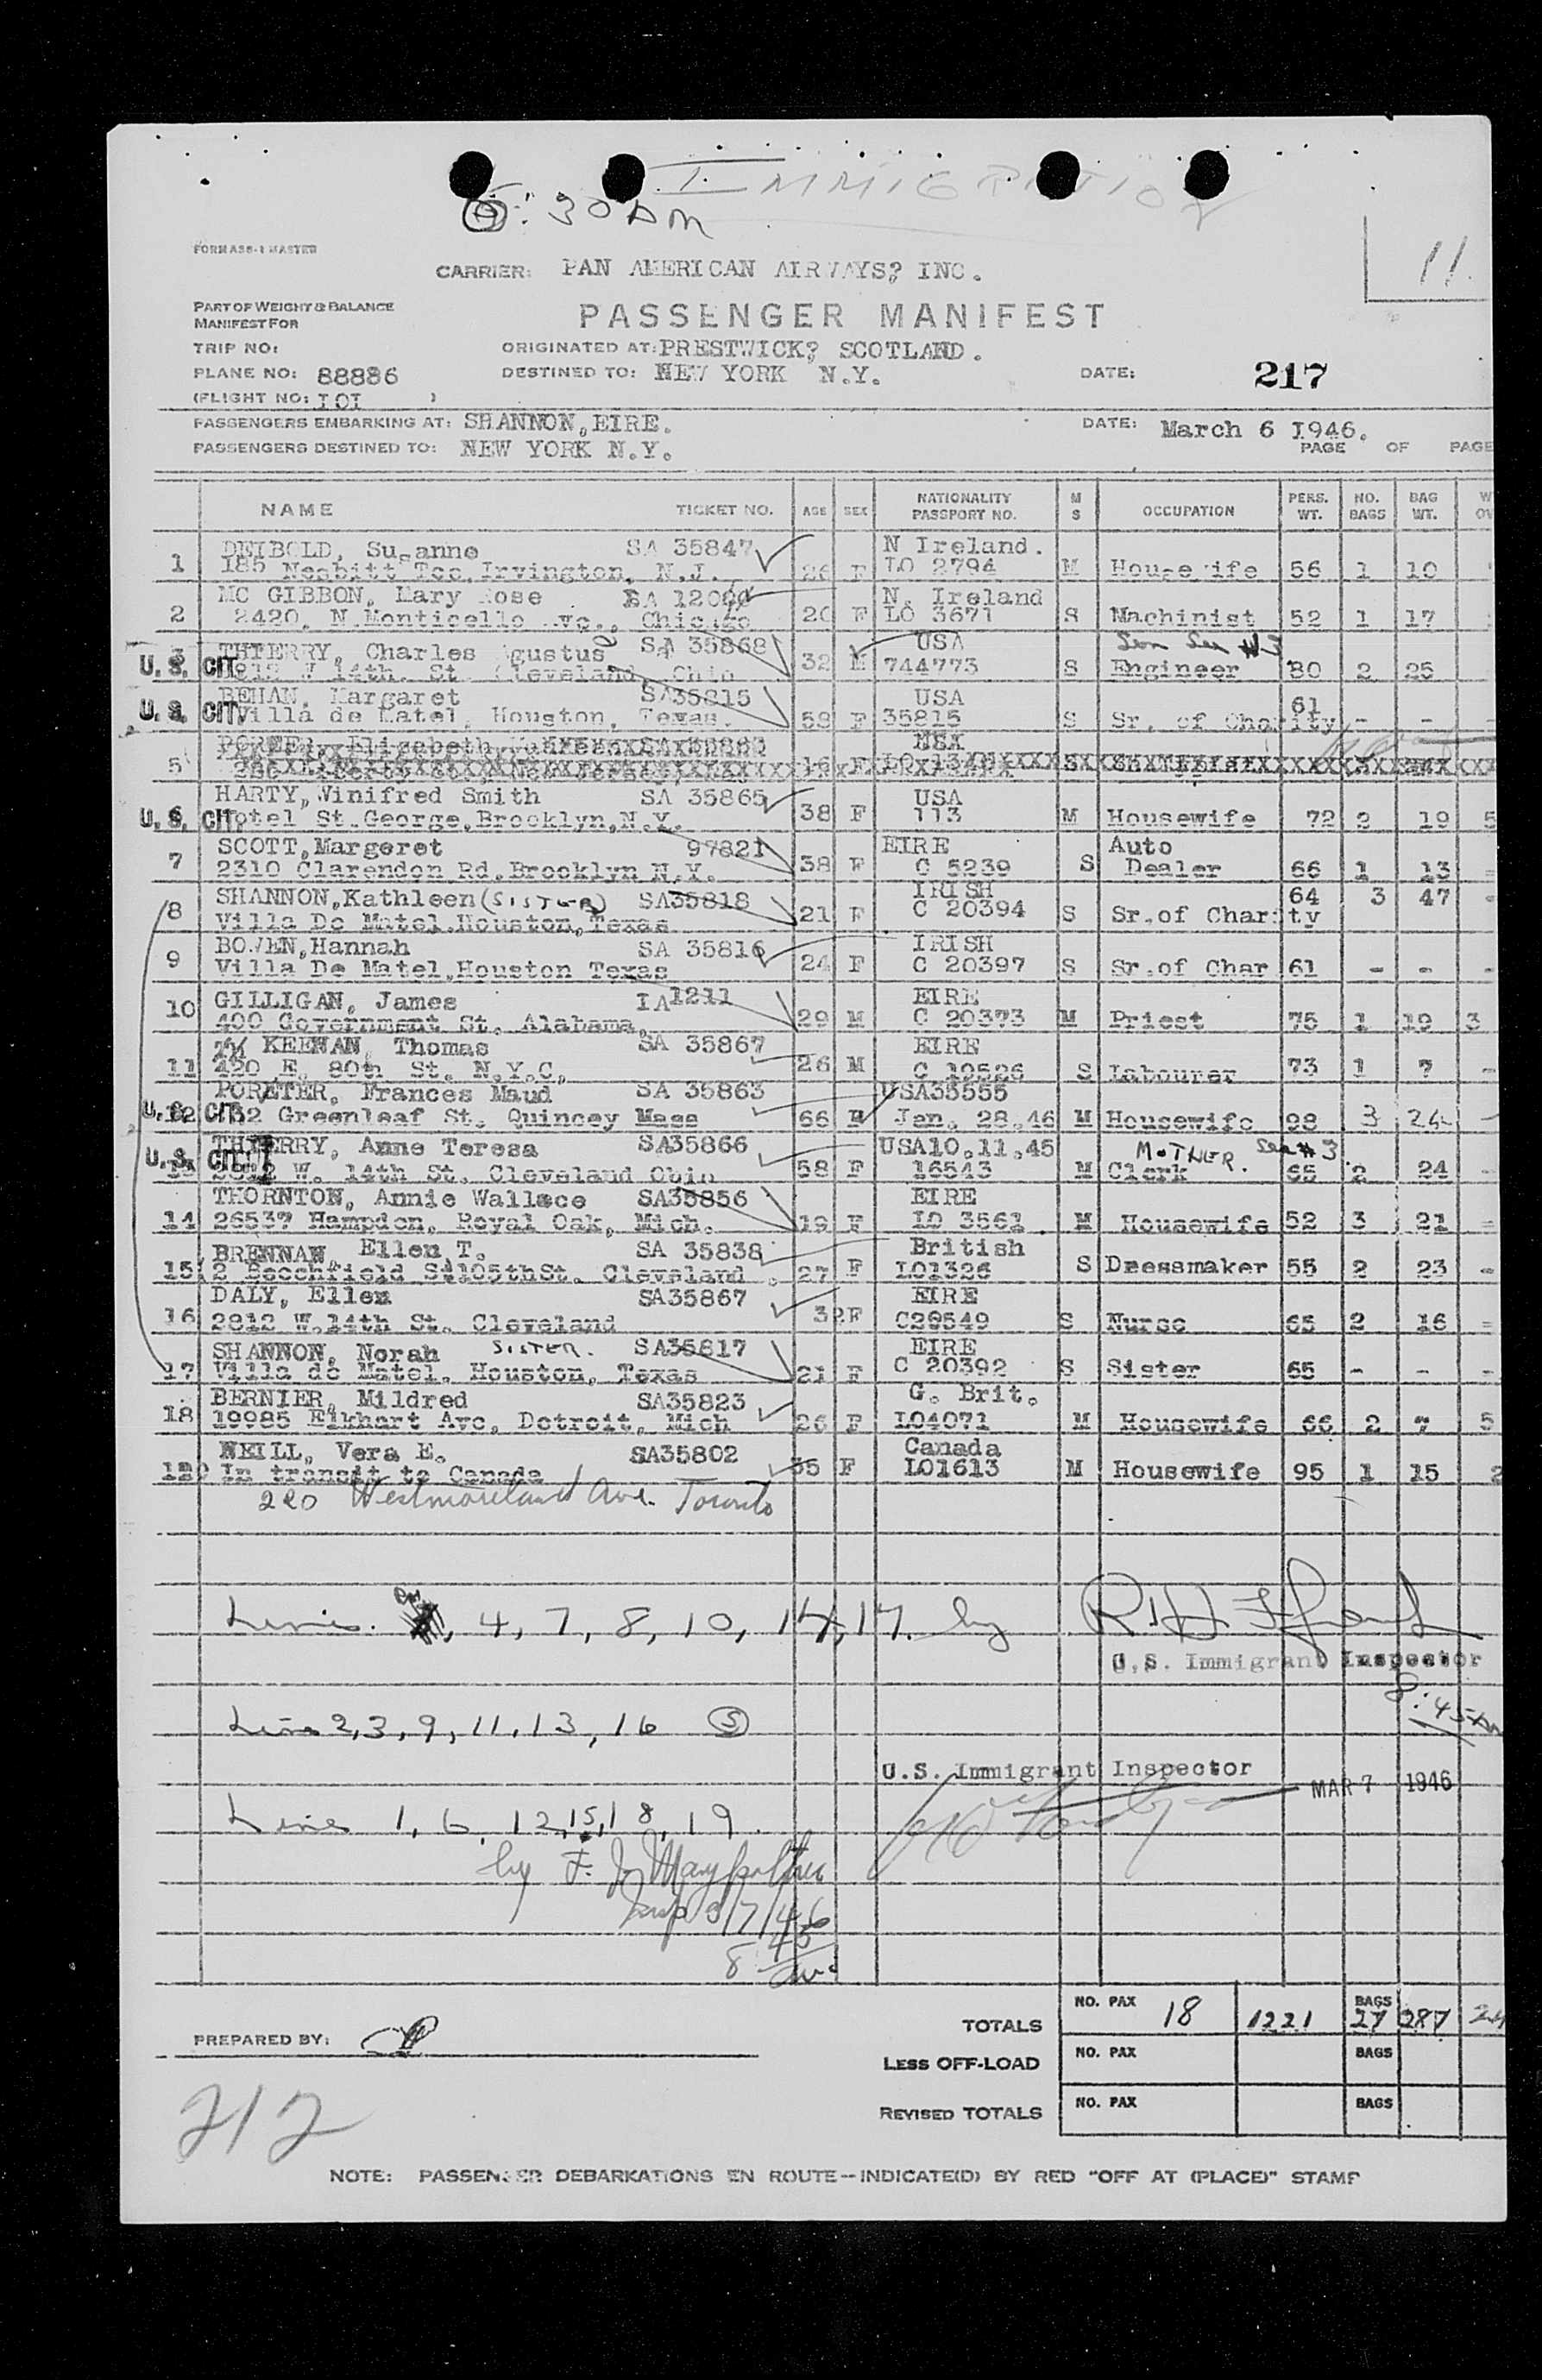 IMMIGRATION
:30 AM
FORM ASS-1 MASTER
11.
CARRIER: PAN AMERICAN AIRWAYS? INC.
PART OF WEIGHT & BALANCE
MANIFEST FOR
PASSENGER MANIFEST
TRIP NO:
ORIGINATED AT: PRESTWICK? SCOTLAND.
PLANE NO: 88886
DESTINED TO: NEW YORK N.Y.
DATE: 217
(FLIGHT NO: IOI )
PASSENGERS EMBARKING AT: SHANNON, EIRE.
DATE: March 6 I946.
PASSENGERS DESTINED TO: NEW YORK N.Y.
PAGE OF PAGE
NAME TICKET NO. AGE SEX NATIONALITY PASSPORT NO. M S OCCUPATION PERS. WT. NO. BAGS BAG WT.
DEIBOLD, Susanne SA 35847 N Ireland.
1 185 Nesbitt Tec, Irvington, N.J. 26 F LO 2794 M Housewife 56 1 10
MC GIBBON, Mary Rose 12000 N. Ireland
2 2420, N.Monticello Chicago 20 F LO 3671 S Machinist 52 1 17
THIERRY, Charles Agustus SA 35868 USA Son See #3
U. S. CIT. W 14th. St. Cleveland, Ohio 32 M 744773 S Engineer 80 2 25
BEHAN, Margaret SA35815 USA 61
U. S. CIT. Villa de Matel, Houston, Texas. 58 F 35815 S Sr. of Charity - -
5 Elizabeth 16 F
HARTY, Winifred Smith SA 35865 USA
U. S. CIT. Hotel St.George, Brooklyn, N.Y. 38 F 113 M Housewife 72 2 19 5
SCOTT, Margeret 97821 EIRE Auto
7 2310 Clarendon Rd. Brooklyn N.Y. 38 F C 5239 S Dealer 66 1 13 -
SHANNON, Kathleen (SISTER) SA35818 IRISH 64 3 47 -
8 Villa De Matel, Houston, Texas 21 F C 20394 S Sr.of Charity
BOWEN, Hannah SA 35816 IRISH
9 Villa De Matel, Houston Texas 24 F C 20397 S Sr.of Char 61 - - -
GILLIGAN, James IA1211 EIRE
10 400 Government St. Alabama, 29 M C 20373 M Priest 75 1 19 3
KEENAN, Thomas SA 35867 EIRE
11 420 E. 80th St. N.Y.C, 26 M C 19526 S Labourer 73 1 7 -
PORTER, Frances Maud SA 35863 USA35555
U. S. CIT. 12 32 Greenleaf St. Quincey Mass 66 Jan. 28.46 M Housewife 98 3 24 -
THIERRY, Anne Teresa SA35866 USA10.11.45 MOTHER. See #3
U. S. CIT. 13 2812 W. 14th St. Cleveland Ohio 58 F 16543 M Clerk 65 2 24 -
THORNTON, Annie Wallace SA35856 EIRE
14 26537 Hampdon, Royal Oak, Mich. 19 F LO 3561 M Housewife 52 3 21 -
BRENNAN, Ellen T. SA 35838 British
15 12 Beechfield St105thSt. Cleveland 27 F LO1326 S Dressmaker 55 2 23 -
DALY, Ellen SA35867 EIRE
16 2812 W.14th St. Cleveland 32F C20549 S Nurse 65 2 16 -
SHANNON, Norah SISTER. SA35817 EIRE
17 Villa de Matel, Houston, Texas 21 F C 20392 S Sister 65 - - -
BERNIER, Mildred SA35823 G. Brit.
18 19985 Elkhart Ave, Detroit, Mich 26 F LO4071 M Housewife 66 2 7 5
NEILL, Vera E. SA35802 Canada
19 In transit to Canada 35 F LO1613 M Housewife 95 1 15 2
220 Westmoreland Ave. Toronto
Lines. 4, 7, 8, 10, 14, 17. by
U.S. Immigrant Inspector
8:45 AM
Lines 2, 3, 9, 11, 13, 16
U.S. Immigrant Inspector
MAR 7 1946
Lines 1, 6, 12, 15, 18, 19.
by F. J.
Insp 3/7/46
8 45 am
TOTALS NO. PAX 18 1221 BAGS 27 287 24
PREPARED BY:
LESS OFF-LOAD NO. PAX BAGS
REVISED TOTALS NO. PAX BAGS
212
NOTE: PASSENGER DEBARKATIONS EN ROUTE--INDICATE(D) BY RED "OFF AT (PLACE)" STAMP